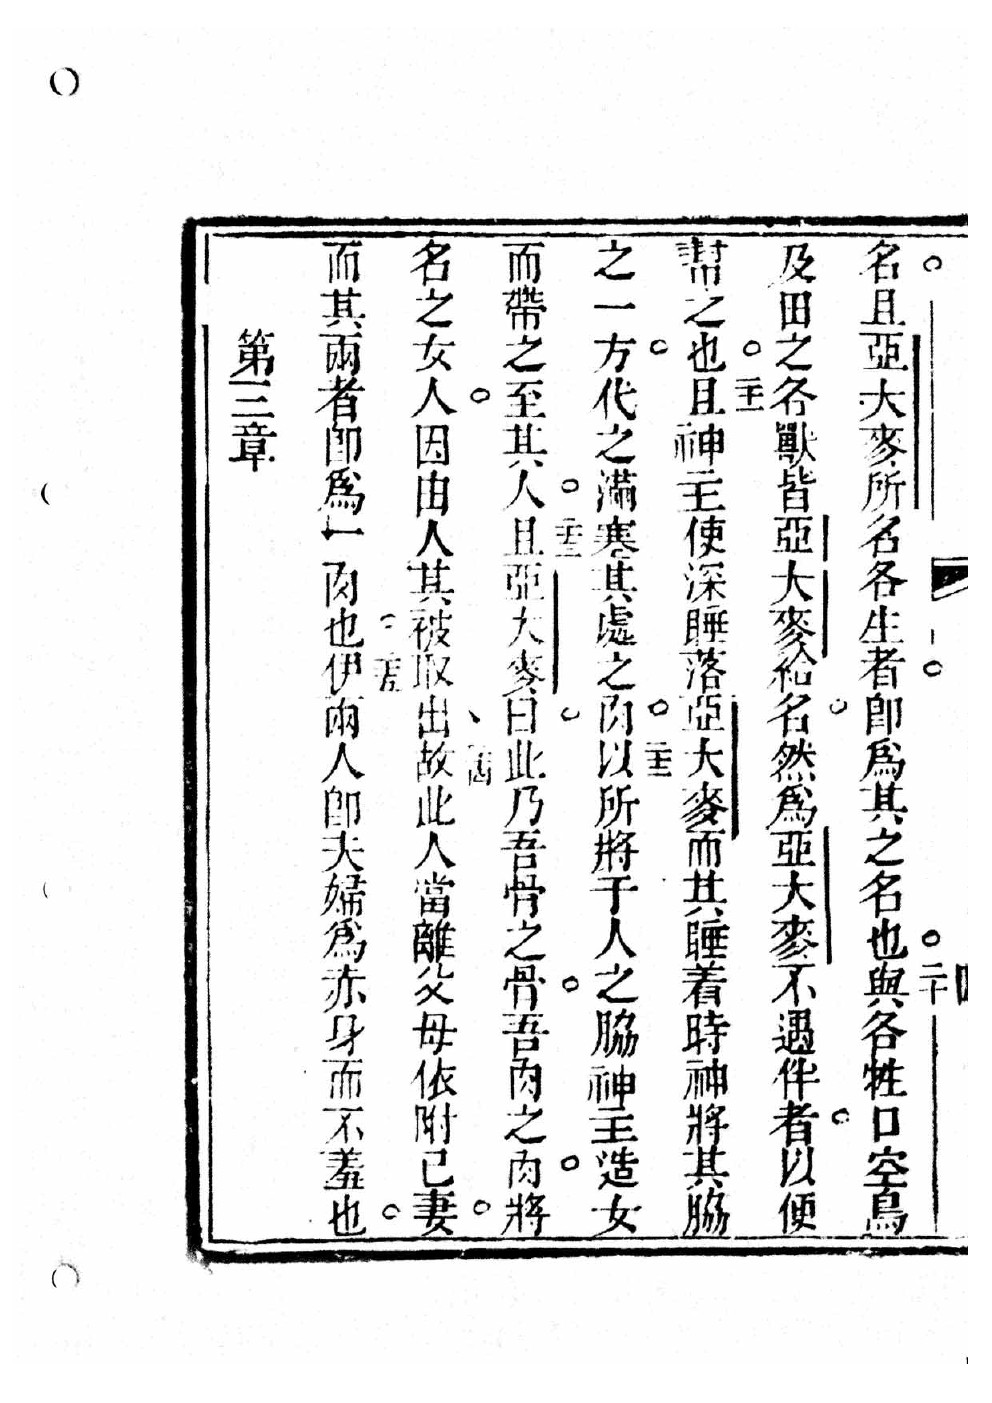 名且亞大麥所名各生者即爲其之名也○二十與各牲口空鳥
及田之各獸皆亞大麥給名○然爲亞大麥不遇伴者○以便
幫之也○二十一且神主使深睡落亞大麥而其睡着時神將其脇
之一方○代之滿塞其處之肉○二十二以所將于人之脇神主造女
而帶之至其人○二十三且亞大麥曰○此乃吾骨之骨○吾肉之肉○將
名之女人○因由人其被取出、二十四故此人當離父母依附己妻○
而其兩者即爲一肉也○二十五伊兩人即夫婦爲赤身而不羞也○
第三章